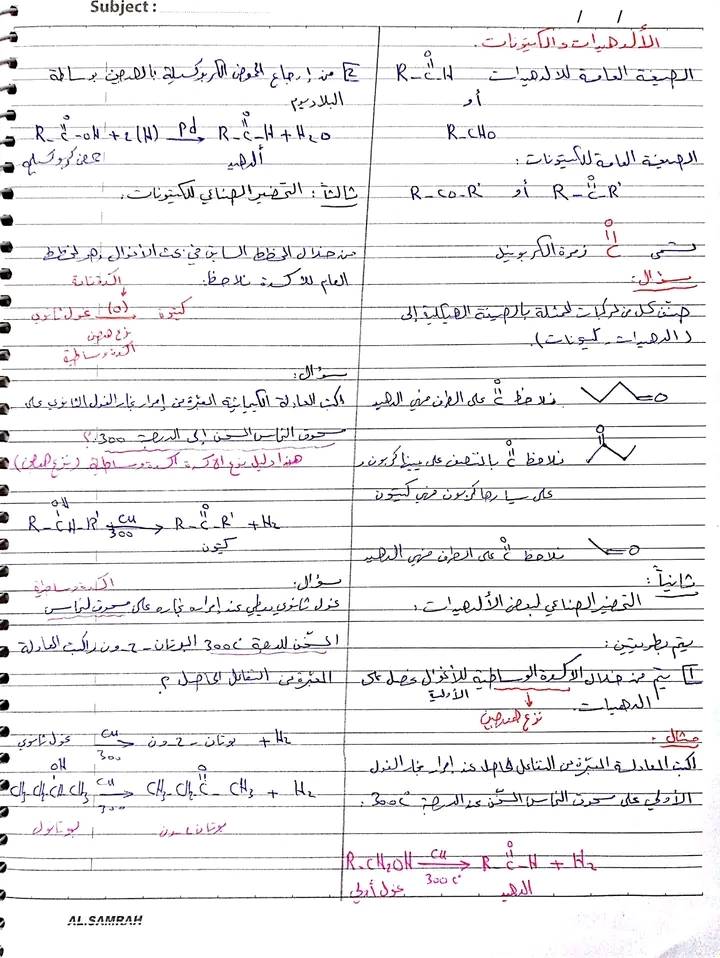 Subject :
/ /
الألدهيدات والكيتونات.
الصيغة العامة للالدهيدات R-C-H
O
أو
R-CHO
الصيغة العامة للكيتونات:
R-C-R' أو R-CO-R'
O
تسمى C زمرة الكربونيل
O
سؤال:
صنّف كل من المركبات الممثلة بالصيغة الهيكلية إلى
(الدهيدات - كيتونات).
نلاحظ C على الطرف فهي الدهيد
O
نلاحظ C بالنصف على يمينها كربون و
O
على يسارها كربون فهي كيتون
نلاحظ C على الطرف فهي الدهيد
O
ثانياً:
التحضير الصناعي لبعض الألدهيدات:
يتم بطريقتين:
1 يتم من خلال الاكسدة الوساطية للأغوال نحصل على
الأولية
الدهيدات.
نزع الهدرجين
مثال:
اكتب المعادلة المعبّرة عن التفاعل الحاصل عند إمرار بخار الغول
الأولي على مسحوق النحاس المسخّن عند الدرجة 300C°.
R-CH2OH Cu 300C° → R-C-H + H2
O
غول أولي الدهيد
2 من إرجاع الحموض الكربوكسيلية بالهدرجين بوساطة
البلاديوم
R-C-OH + 2(H) Pd → R-C-H + H2O
O O
حمض كربوكسيلي ألدهيد
ثالثاً: التحضير الصناعي للكيتونات.
من خلال المخطط السابق في بحث الأغوال وهو المخطط
العام للاكسدة نلاحظ:
اكسدة تامة
غول ثانوي (O) → كيتون
نزع هدرجين
اكسدة وساطية
سؤال:
اكتب المعادلة الكيميائية المعبّرة عن إمرار بخار الغول الثانوي على
مسحوق النحاس المسخن إلى الدرجة 300.
هذا دليل نوع الاكسدة اكسدة وساطية (نزع هدرجين)
OH
R-CH-R' Cu 300 → R-C-R' + H2
O
كيتون
سؤال: اكسدة وساطية
غول ثانوي يعطي عند إمرار بخاره على مسحوق النحاس
المسخّن للدرجة 300C° البوتان-2-ون اكتب المعادلة
المعبّرة عن التفاعل الحاصل
غول ثانوي Cu 300 → بوتان-2-ون + H2
OH
CH3CH2CHCH3 Cu 300 → CH3-CH2C-CH3 + H2
O
بوتانول بوتان-2-ون
AL.SAMRAH